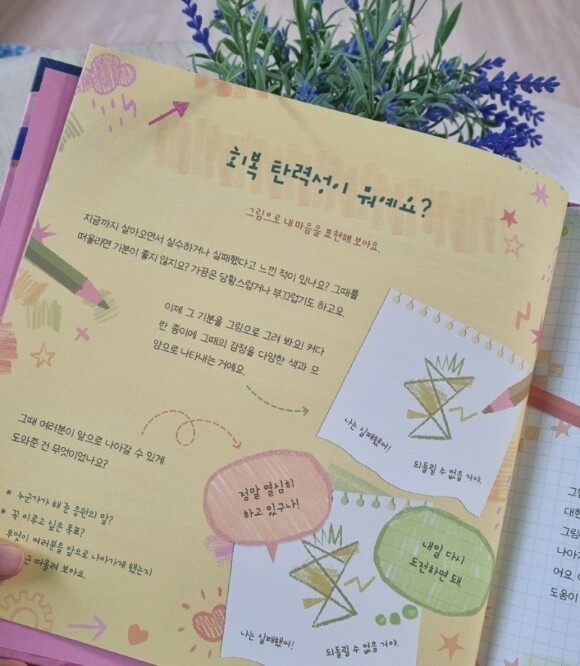 회복 탄력성이 뭐예요?
그림으로 내 마음을 표현해 보아요.
지금까지 살아오면서 실수하거나 실패했다고 느낀 적이 있나요? 그때를
떠올리면 기분이 좋지 않지요? 가끔은 당황스럽거나 부끄럽기도 하고요.
이제 그 기분을 그림으로 그려 봐요! 커다
란 종이에 그때의 감정을 다양한 색과 모
양으로 나타내는 거예요.
나는 실패했어!
되돌릴 수 없을 거야.
그때 여러분이 앞으로 나아갈 수 있게
도와준 건 무엇이었나요?
* 누군가가 해 준 응원의 말?
* 꼭 이루고 싶은 목표?
무엇이 여러분을 앞으로 나아가게 했는지
떠올려 보아요.
정말 열심히
하고 있구나!
내일 다시
도전하면 돼.
나는 실패했어!
되돌릴 수 없을 거야.
그
대한
그림
어요.
도움이